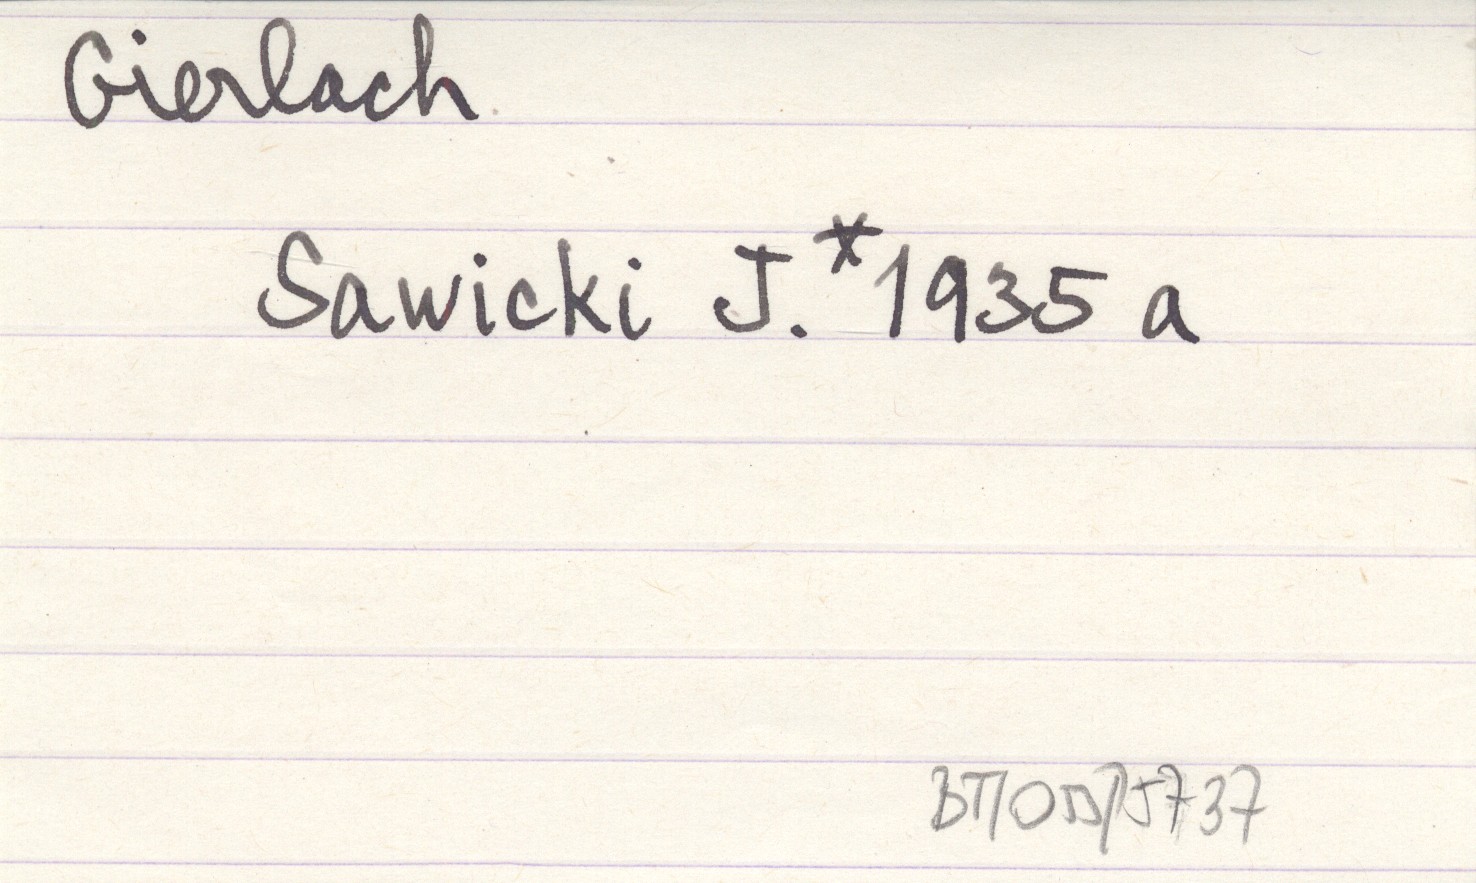 Gierlach
Sawicki J.*1935 a
BT/OD/5737